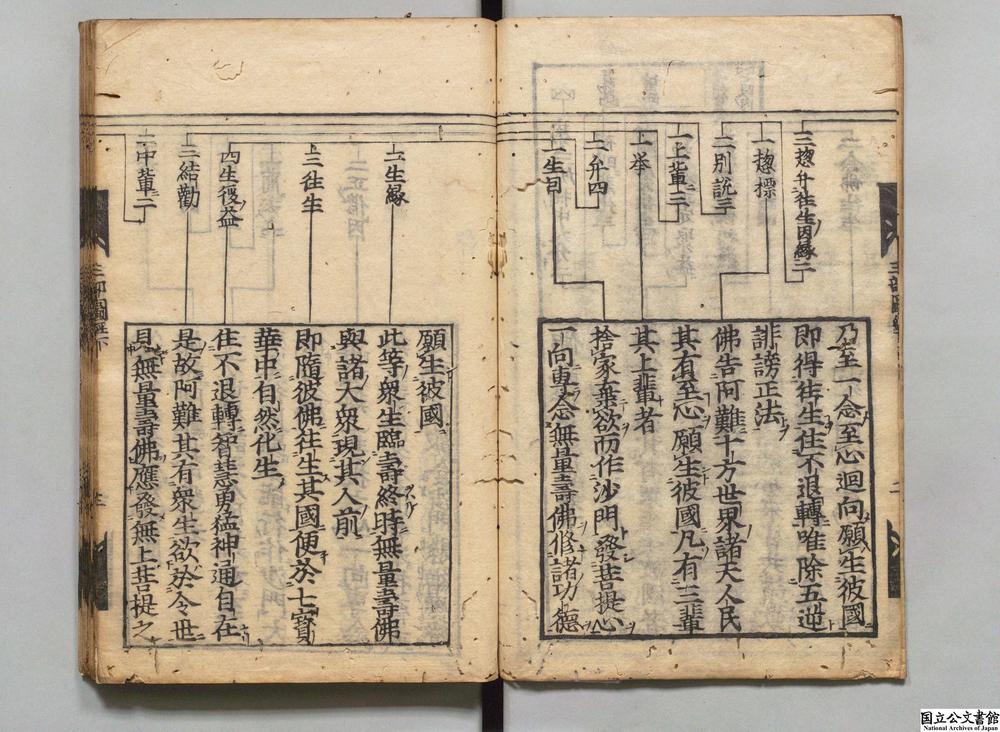 三惣弁往生因縁二
一惣標
二別説三
一上輩二
上挙
二弁四
一生因
乃至一念至心迴向願生彼國
即得往生住不退轉唯除五逆
誹謗正法
佛告阿難十方世界諸天人民
其有至心願生彼國凡有三輩
其上輩者
捨家棄欲而作沙門發菩提心
一向專念無量壽佛修諸功德
二生縁
三往生
四生後益
三結勸
二中輩二
三部
下
願生彼國
此等衆生臨壽終時無量壽佛
與諸大衆現其人前
即隨彼佛往生其國便於七寳
華中自然化生
住不退轉智慧勇猛神通自在
是故阿難其有衆生欲於今世
見無量壽佛應發無上菩提之
国立公文書館
National Archives of Japan